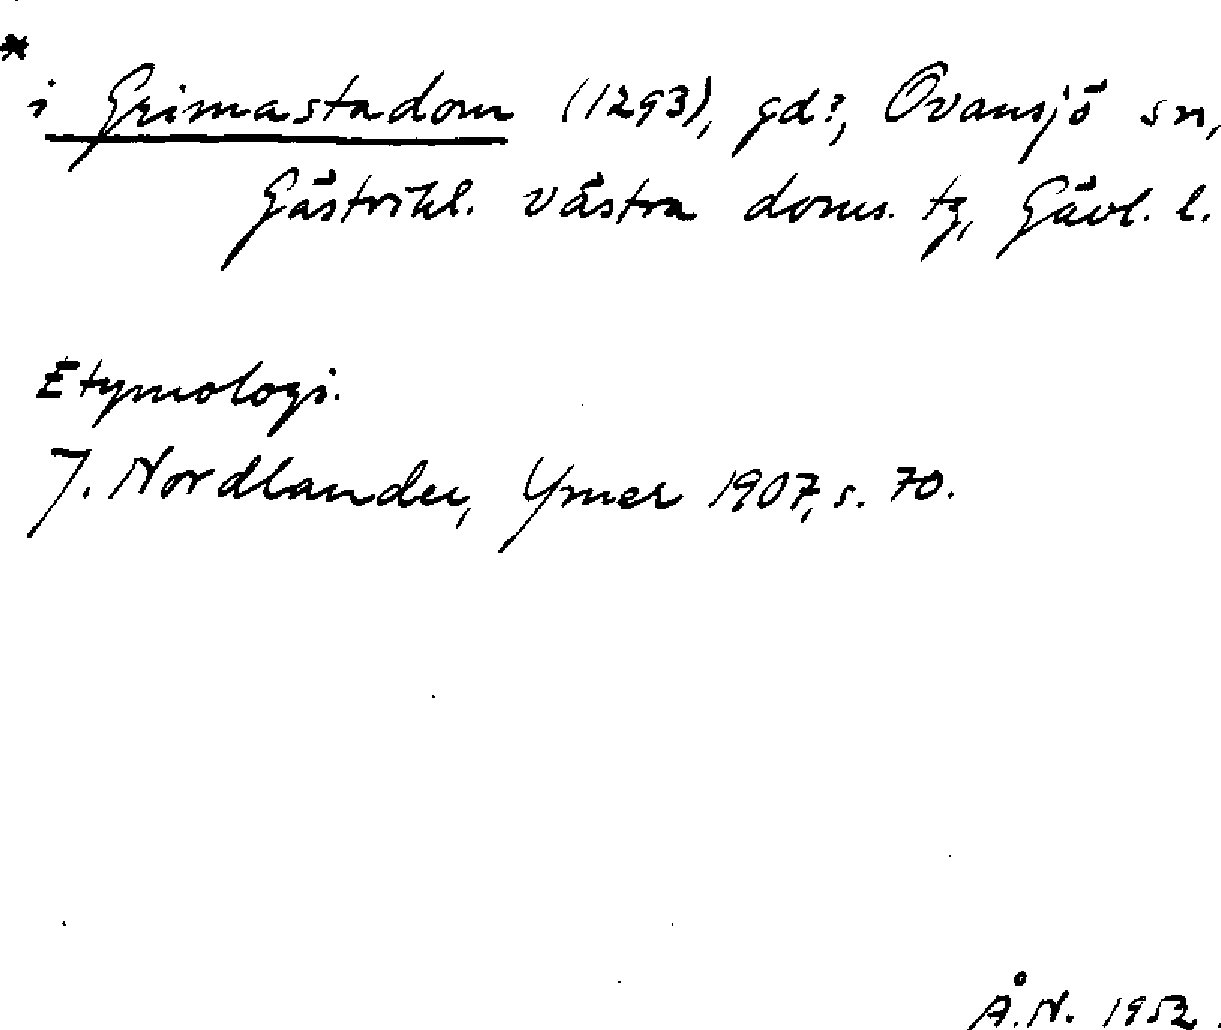 * i Grimastadom (1293), gd?, Ovansjö sn,
Gästrikl. västra doms. tg, Gävl. l.
Etymologi.
J. Nordlander, Ymer 1907, s. 70.
Å.N. 1952.